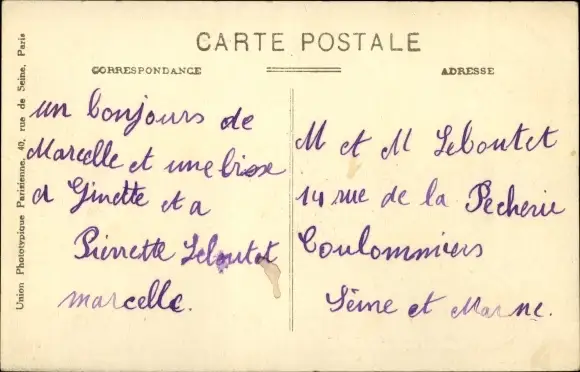 CARTE POSTALE
CORRESPONDANCE
ADRESSE
un bonjours de
Marcelle et une bise
a Ginette et a
Pierrette Leboutet
marcelle.
M et M Leboutet
14 rue de la Pecherie
Coulommiers
Seine et Marne.
Union Phototypique Parisienne, 40, rue de Seine, Paris